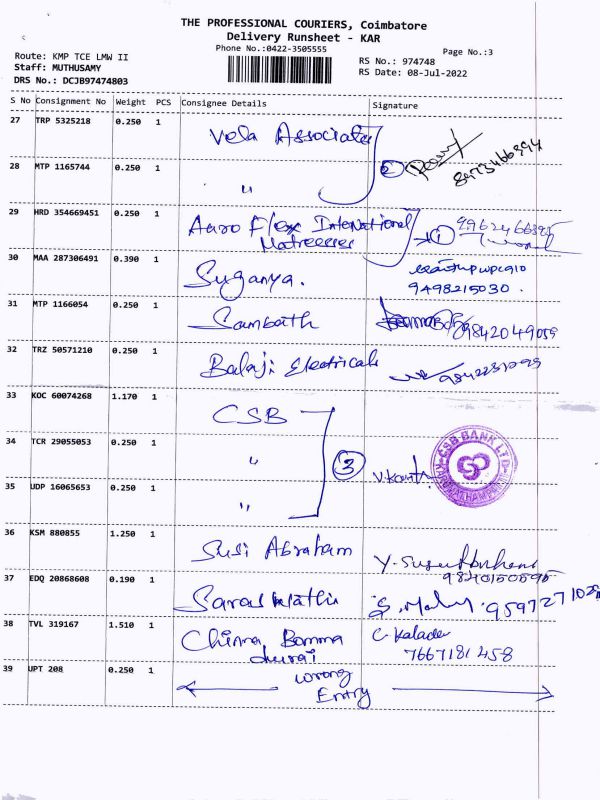 THE PROFESSIONAL COURIERS, Coimbatore
Delivery Runsheet - KAR
Phone No.:0422-3505555
Page No.:3
Route: KMP TCE LMW II
Staff: MUTHUSAMY
DRS No.: DCJB97474803
RS No.: 974748
RS Date: 08-Jul-2022
S No Consignment No Weight PCS Consignee Details Signature
27 TRP 5325218 0.250 1 Vela Associates
28 MTP 1165744 0.250 1 " 2 8973466394
29 HRD 354669451 0.250 1 Aaro Flex International
Matreesses 1
30 MAA 287306491 0.390 1 Suganya. 9498215030.
31 MTP 1166054 0.250 1 Sambath 9842049059
32 TRZ 50571210 0.250 1 Balaji Electricals
33 KOC 60074268 1.170 1 CSB
34 TCR 29055053 0.250 1 " 3 CSB BANK LTD
35 UDP 16065653 0.250 1 "
36 KSM 880855 1.250 1 Susi Abraham
37 EDQ 20868608 0.190 1 Saraswathi
38 TVL 319167 1.510 1 Chinna Bomma
durai 7667181458
39 UPT 208 0.250 1 wrong
Entry